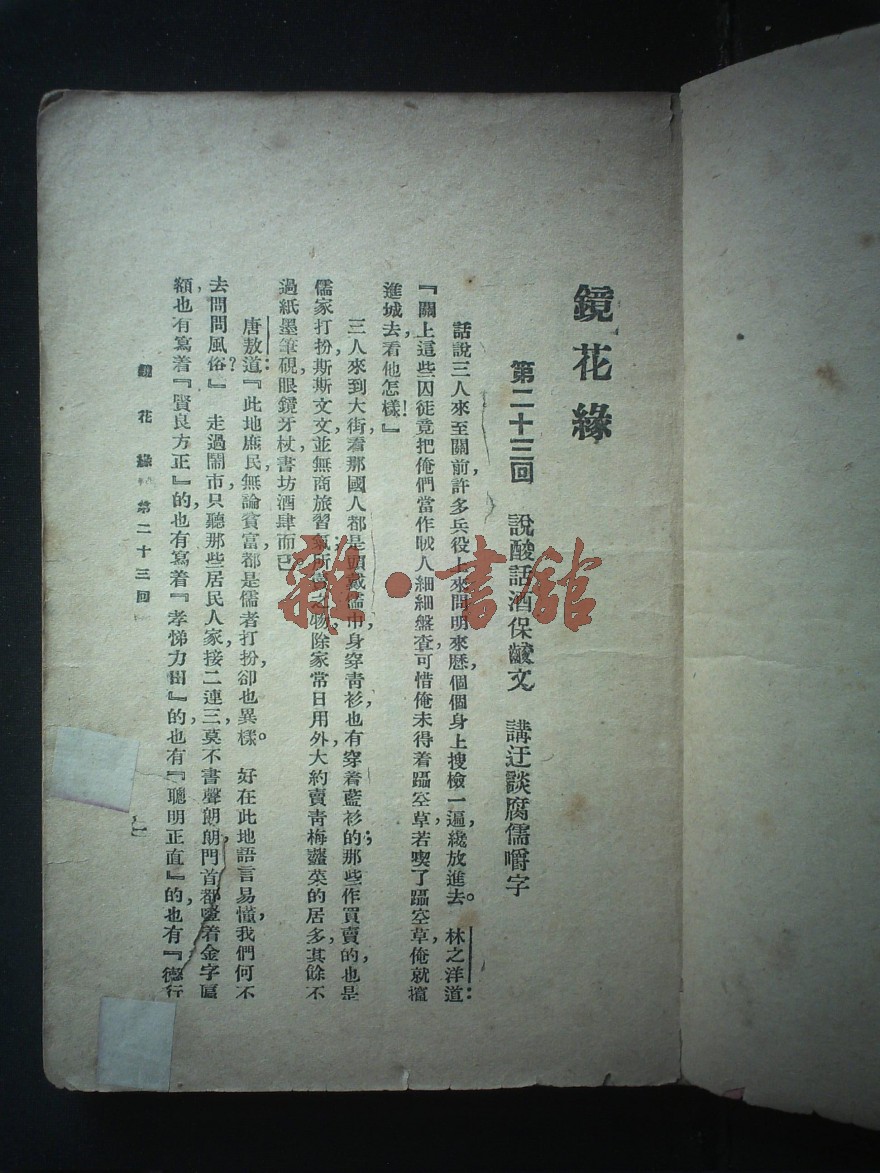 鏡花緣
第二十三回　說酸話酒保齩文　講迂談腐儒嚼字
話說三人來至關前，許多兵役上來問明來歷，個個身上搜檢一遍，纔放進去。林之洋道：
『關上這些囚徒竟把俺們當作賊人，細細盤查；可惜俺未得着躡空草，若喫了躡空草，俺就攛
進城去，看他怎樣！』
三人來到大街，看那國人都是頭戴儒巾，身穿青衫，也有穿着藍衫的；那些作買賣的，也是
儒家打扮，斯斯文文，並無商旅習氣。所賣之物，除家常日用外，大約賣青梅、虀菜的居多，其餘不
過紙墨筆硯，眼鏡牙杖，書坊酒肆而已。
唐敖道：『此地庶民，無論貧富，都是儒者打扮，卻也異樣。好在此地語言易懂，我們何不
去問問風俗？』走過鬧市，只聽那些居民人家，接二連三，莫不書聲朗朗，門首都豎着金字匾
額：也有寫着『賢良方正』的，也有寫着『孝悌力田』的，也有『聰明正直』的，也有『德行
鏡花緣　第二十三回
一
雜·書館